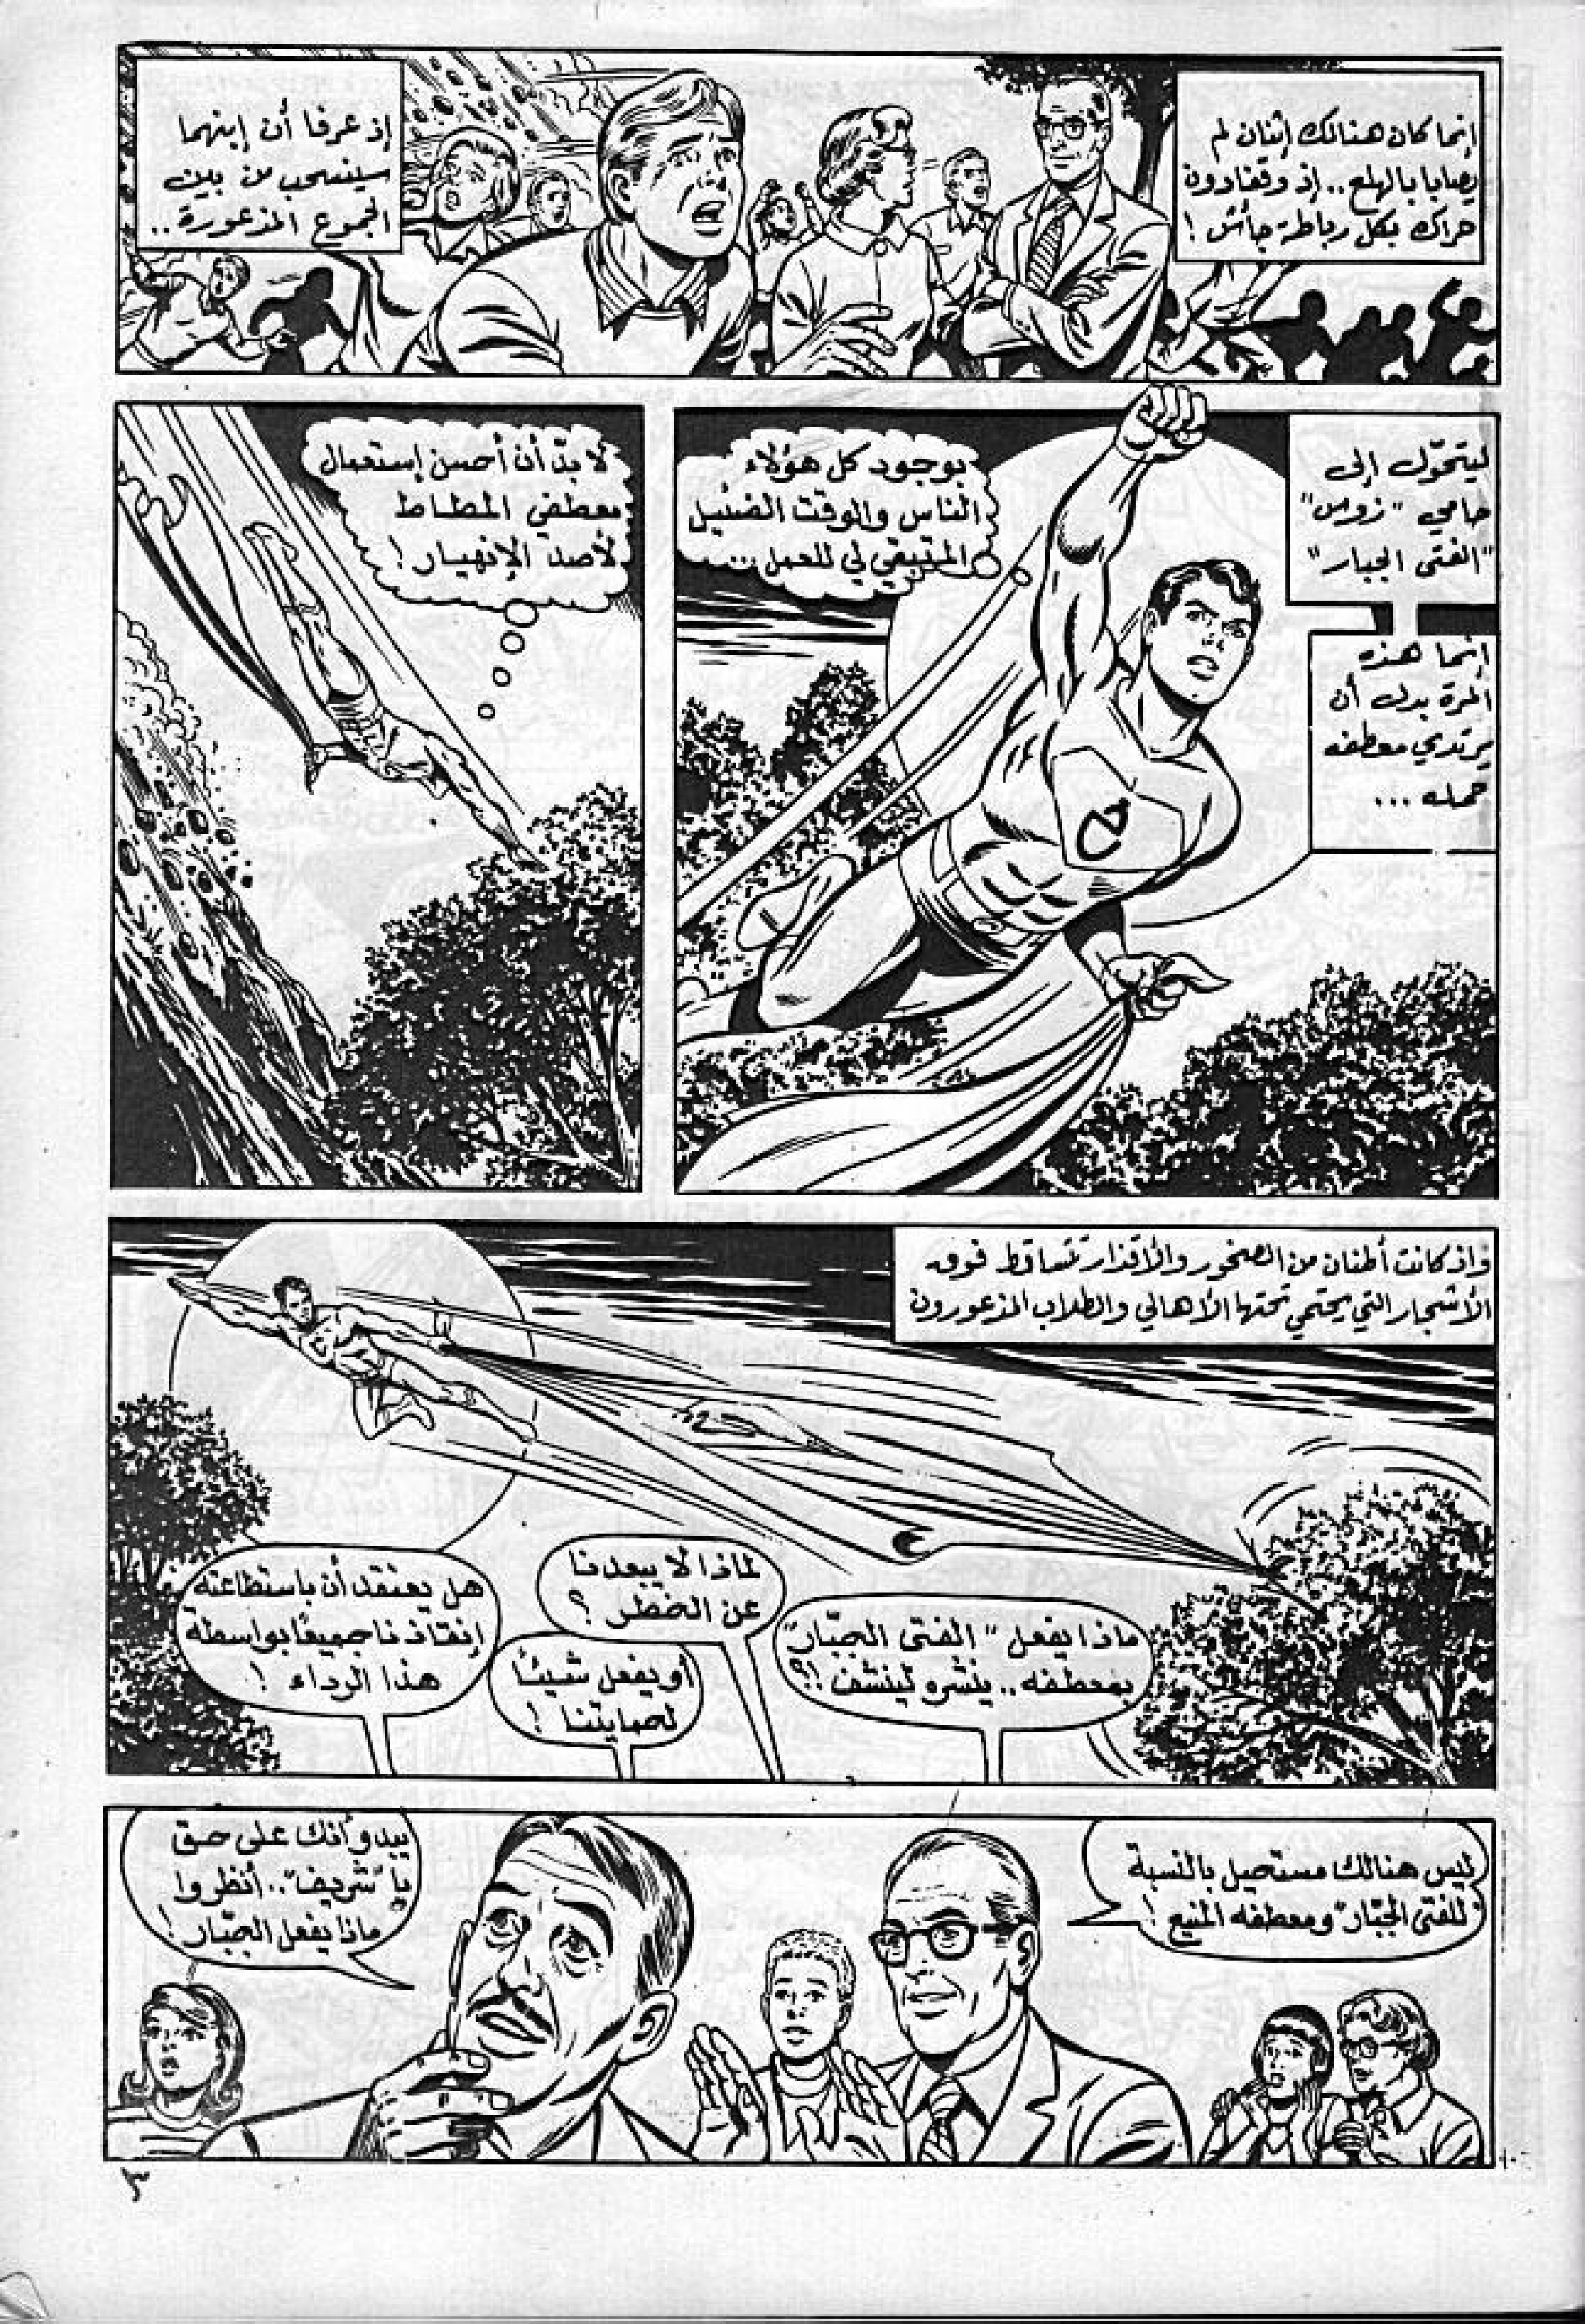 إنما كان هنالك إثنان لم
يصابا بالهلع.. إذ وقفا دون
حراك بكل رباطة جأش!
إذ عرفا أن إبنهما
سينسحب من بين
الجموع المذعورة..
ليتحوّل إلى
حامي "زوس"
"الفتى الجبار"
إنما هذه
المرة بدل أن
يرتدي معطفه
حمله...
بوجود كل هؤلاء
الناس والوقت الضئيل
المتبقي لي للعمل...
لا بدّ أن أحسن إستعمال
معطفي المطاط
لأصدّ الإنهيار!
وإذ كانت أطنان من الصخور والأقذار تتساقط فوق
الأشجار التي يحتمي تحتها الأهالي والطلاب المذعورون
ماذا يفعل "الفتى الجبّار"
بمعطفه.. ينشره لينشف!؟
لماذا لا يبعدنا
عن الخطر؟
أو يفعل شيئاً
لحمايتنا!
هل يعتقد أن باستطاعته
إنقاذنا جميعاً بواسطة
هذا الرداء!
ليس هنالك مستحيل بالنسبة
"للفتى الجبّار" ومعطفه المنيع!
يبدو أنك على حق
يا "شريف".. أنظروا
ماذا يفعل الجبّار!